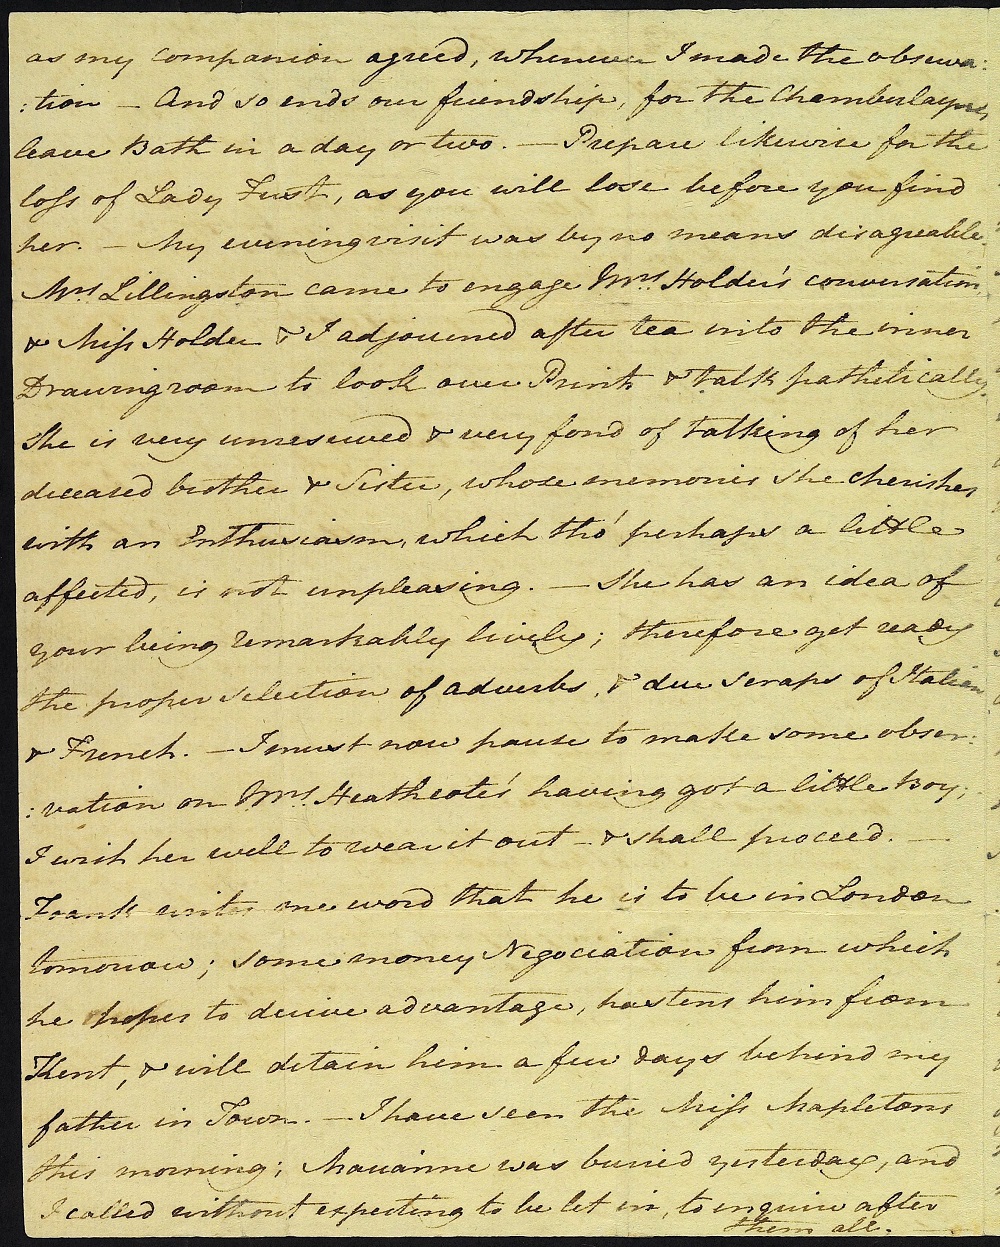 as my companion agreed, whenever I made the observa:
:tion – And so ends our friendship, for the Chamberlaynes
leave Bath in a day or two. — Prepare likewise for the
loss of Lady Fust, as you will lose before you find
her. – My evening visit was by no means disagreable.
Mrs Lillingston came to engage Mrs Holder's conversation,
& Miss Holder & I adjourned after tea into the inner
Drawingroom to look over Prints & talk pathetically.
She is very unreserved & very fond of talking of her
deceased brother & Sister, whose memories she cherishes
with an Enthusiasm, which tho' perhaps a little
affected, is not unpleasing. — She has an idea of
your being remarkably lively; therefore get ready
the proper selection of adverbs, & due scraps of Italian
& French. – I must now pause to make some obser:
:vation on Mrs Heathcote's having got a little Boy;
I wish her well to wear it out – & shall proceed. —
Frank writes me word that he is to be in London
tomorrow; some money Negociation from which
he hopes to derive advantage, hastens him from
Kent, & will detain him a few days behind my
father in Town. – I have seen the Miss Mapletons
this morning; Marianne was buried yesterday, and
I called without expecting to be let in, to enquire after
them all. —